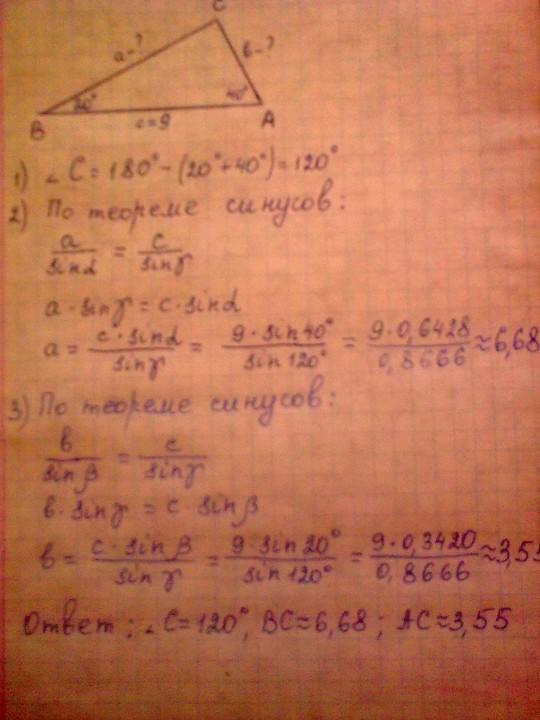 C
a-? в-?
20° 40°
B c=9 A
1) ∠C = 180° - (20° + 40°) = 120°
2) По теореме синусов:
a/sinα = c/sinγ
a · sinγ = c · sinα
a = c · sinα/sinγ = 9 · sin 40°/sin 120° = 9 · 0,6428/0,8666 ≈ 6,68
3) По теореме синусов:
в/sin β = c/sinγ
в · sinγ = c · sin β
в = c · sin β/sin γ = 9 · sin 20°/sin 120° = 9 · 0,3420/0,8666 ≈ 3,55
Ответ: ∠C = 120°, BC ≈ 6,68; AC ≈ 3,55